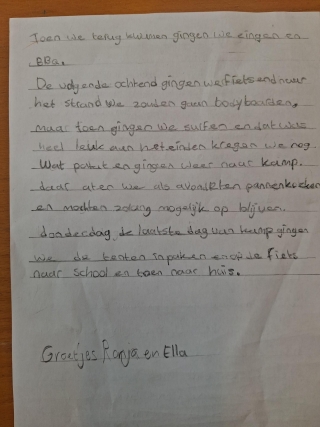 Toen we terug kwamen gingen we eingen en
BBa.
De volgende ochtend gingen we fietsend naar
het strand We zouden gaan bodyboarden,
maar toen gingen we surfen en dat was
heel leuk aan het einden kregen we nog
Wat patat en gingen weer naar kamp.
daar aten we als avondeten pannenkoeken
en mochten zolang mogelijk op blijven.
donderdag de laatste dag van kamp gingen
we de tenten inpakken en op de fiets
naar school en toen naar huis.
Groetjes Ronja en Ella